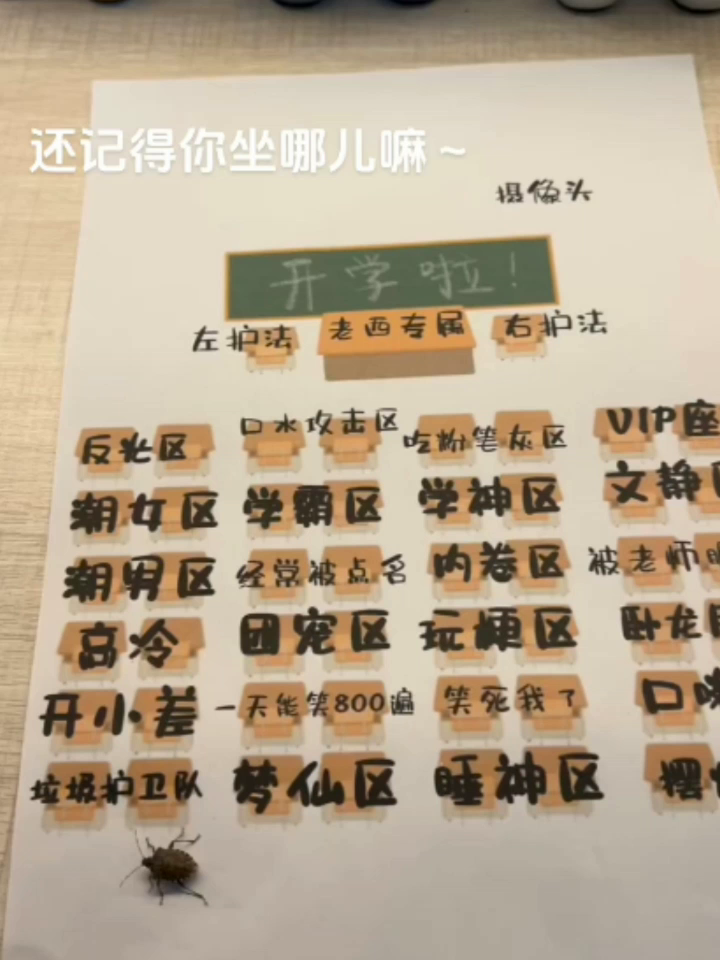 还记得你坐哪儿嘛～
摄像头
开学啦！
左护法 老西专属 右护法
反光区 口水攻击区 吃粉笔灰区 VIP座
潮女区 学霸区 学神区 文静区
潮男区 经常被点名 内卷区 被老师
高冷 团宠区 玩梗区 卧龙
开小差 一天能笑800遍 笑死我了 口
垃圾护卫队 梦仙区 睡神区 摆